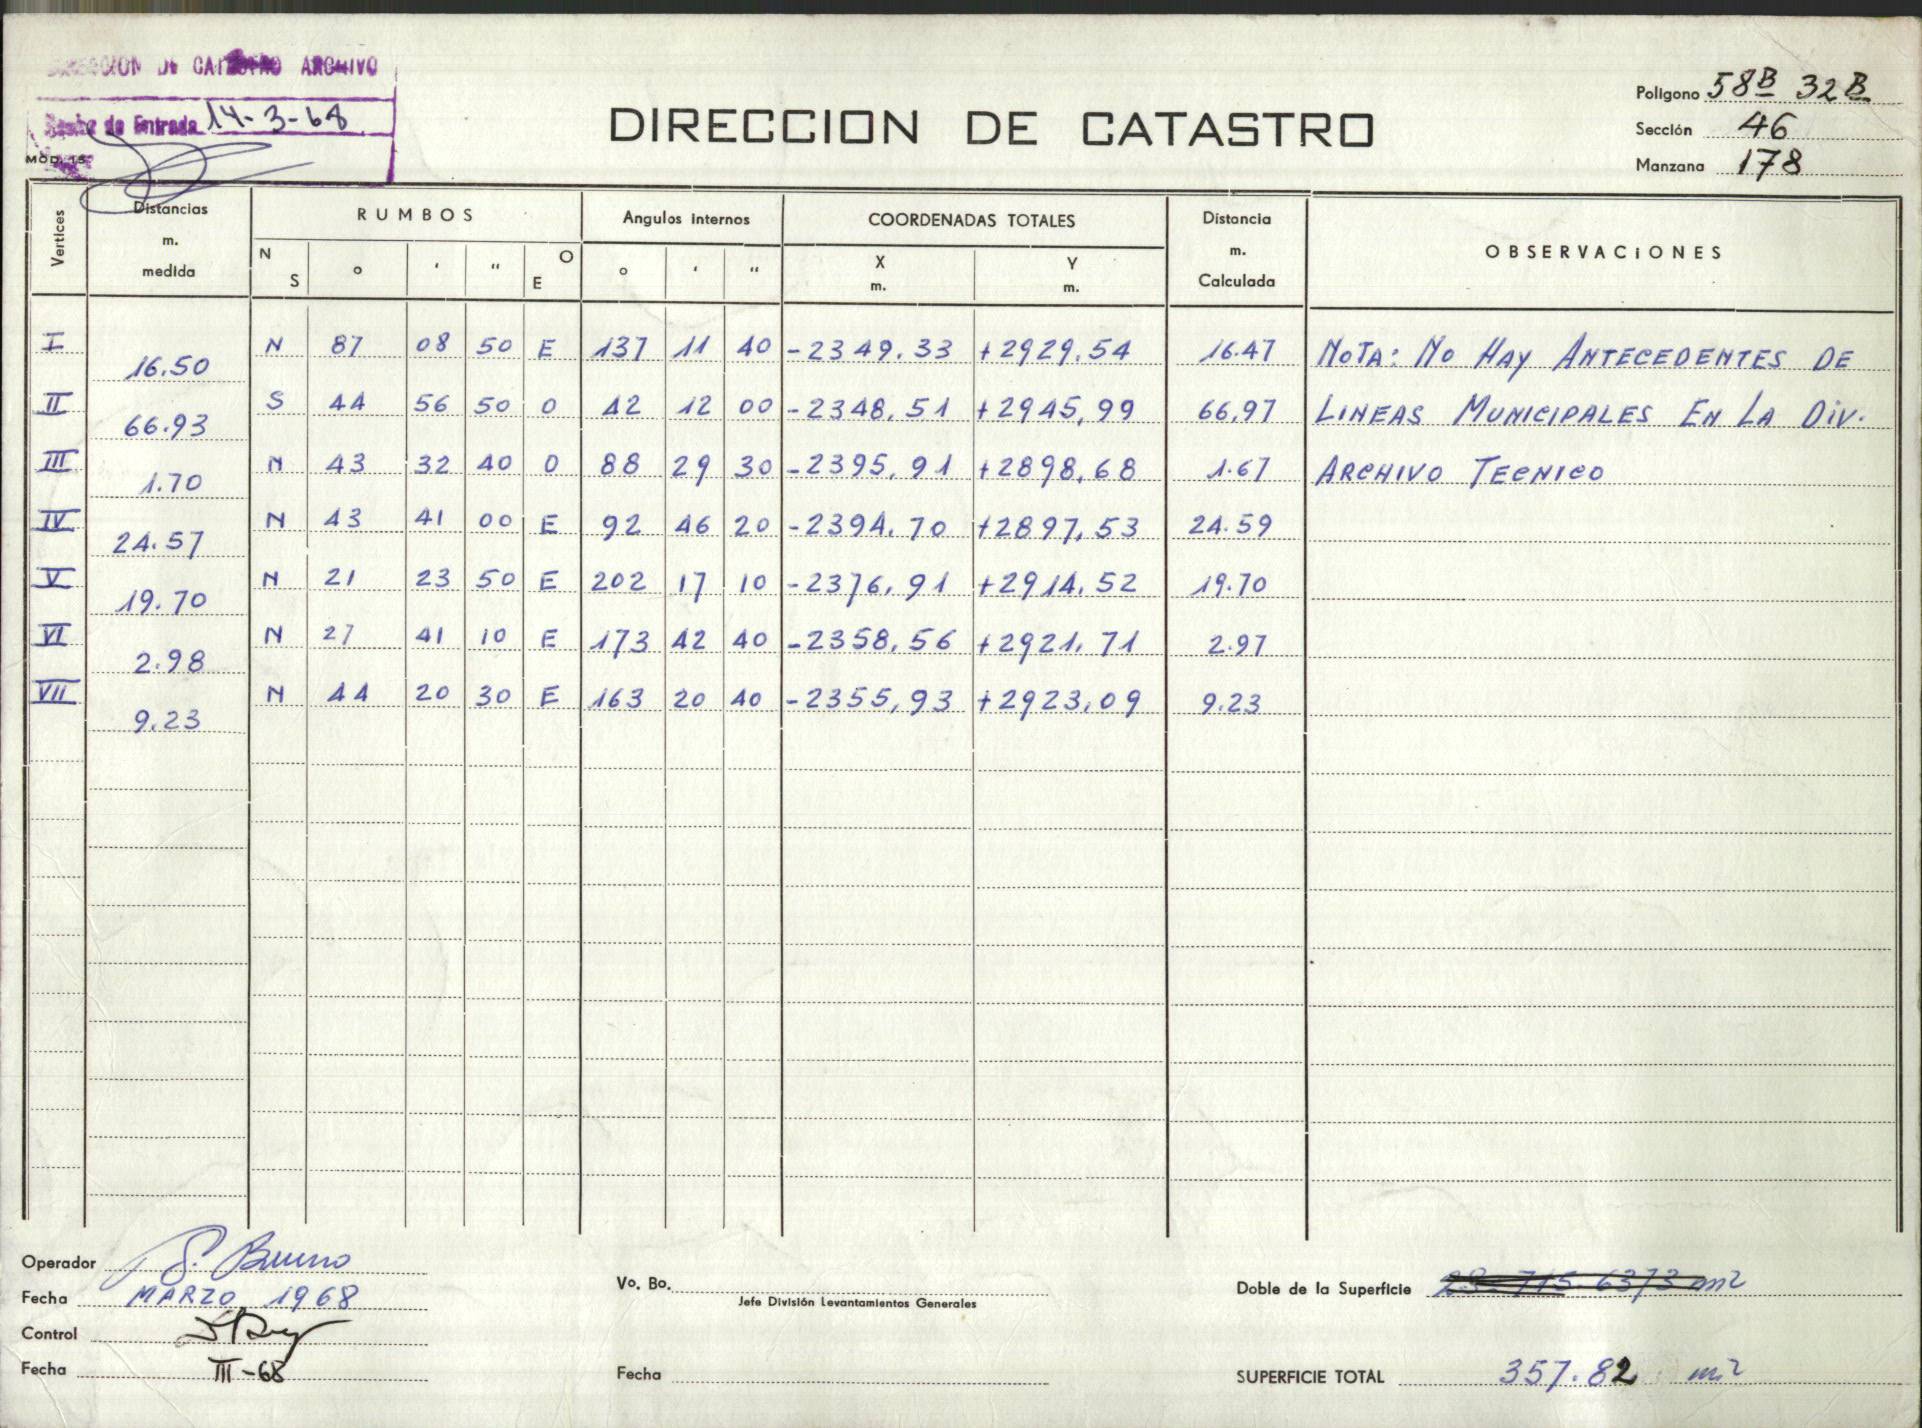 DIRECCION DE CATASTRO ARCHIVO
de Entrada 14-3-68
MOD. 15
DIRECCION DE CATASTRO
Poligono 58B 32B
Sección 46
Manzana 178
Vertices Distancias m. medida RUMBOS Angulos internos COORDENADAS TOTALES Distancia m. Calculada OBSERVACIONES
N S ° ' " O E ° ' " X m. Y m.
I 16.50 N 87 08 50 E 137 11 40 -2349.33 +2929.54 16.47 NOTA: NO HAY ANTECEDENTES DE
II 66.93 S 44 56 50 O 42 12 00 -2348,51 +2945,99 66,97 LINEAS MUNICIPALES EN LA DIV.
III 1.70 N 43 32 40 O 88 29 30 -2395,91 +2898,68 1.67 ARCHIVO TECNICO
IV 24.57 N 43 41 00 E 92 46 20 -2394.70 +2897,53 24.59
V 19.70 N 21 23 50 E 202 17 10 -2376,91 +2914,52 19.70
VI 2.98 N 27 41 10 E 173 42 40 -2358,56 +2921,71 2.97
VII 9.23 N 44 20 30 E 163 20 40 -2355,93 +2923,09 9.23
Operador S. Bueno
Fecha MARZO 1968
Control
Fecha III-68
Vo. Bo.
Jefe División Levantamientos Generales
Fecha
Doble de la Superficie m2
SUPERFICIE TOTAL 357.82 m2